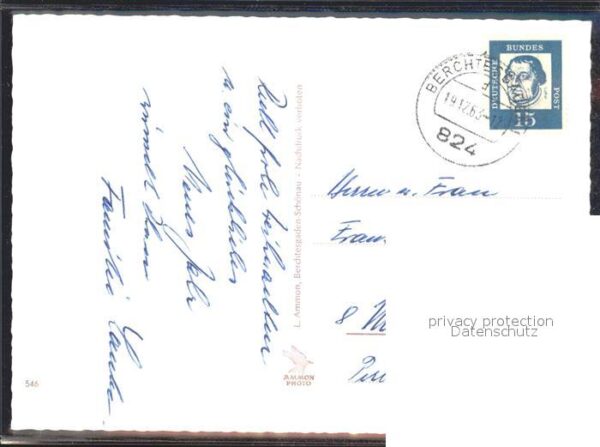 Recht frohe Weihnachten
u. ein glückliches
Neues Jahr
Familie
L. Ammon, Berchtesgaden-Schönau - Nachdruck verboten
AMMON
PHOTO
546
BERCHTES
19.12.63
824
DEUTSCHE
BUNDES
POST
15
Herrn u. Frau
Fran
8 M
privacy protection
Datenschutz